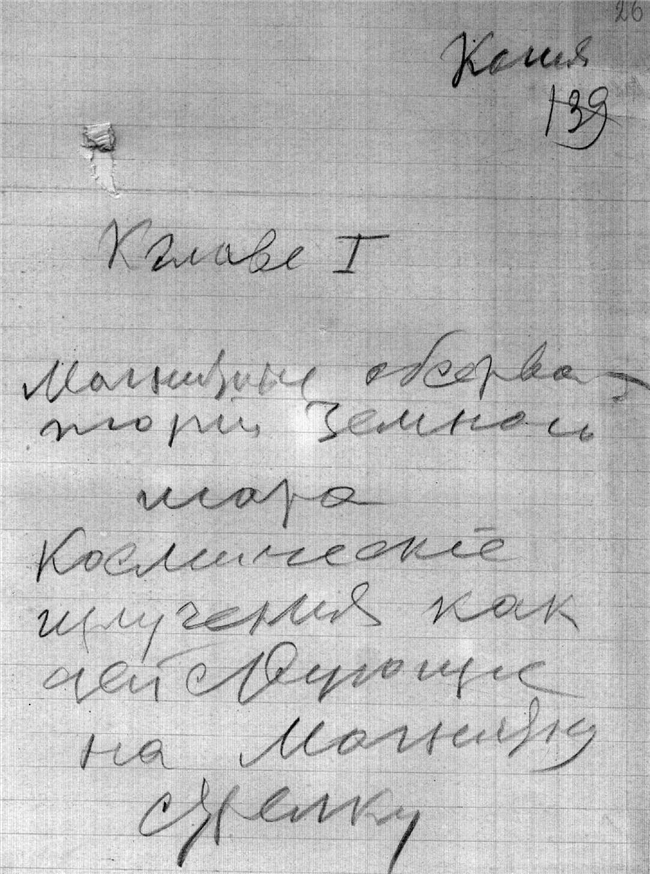 26
Копия
139
К главе I
Магнитные обсерва-
тории Земного
шара
Космическіе
излучения как
действующие
на Магнитную
стрелку